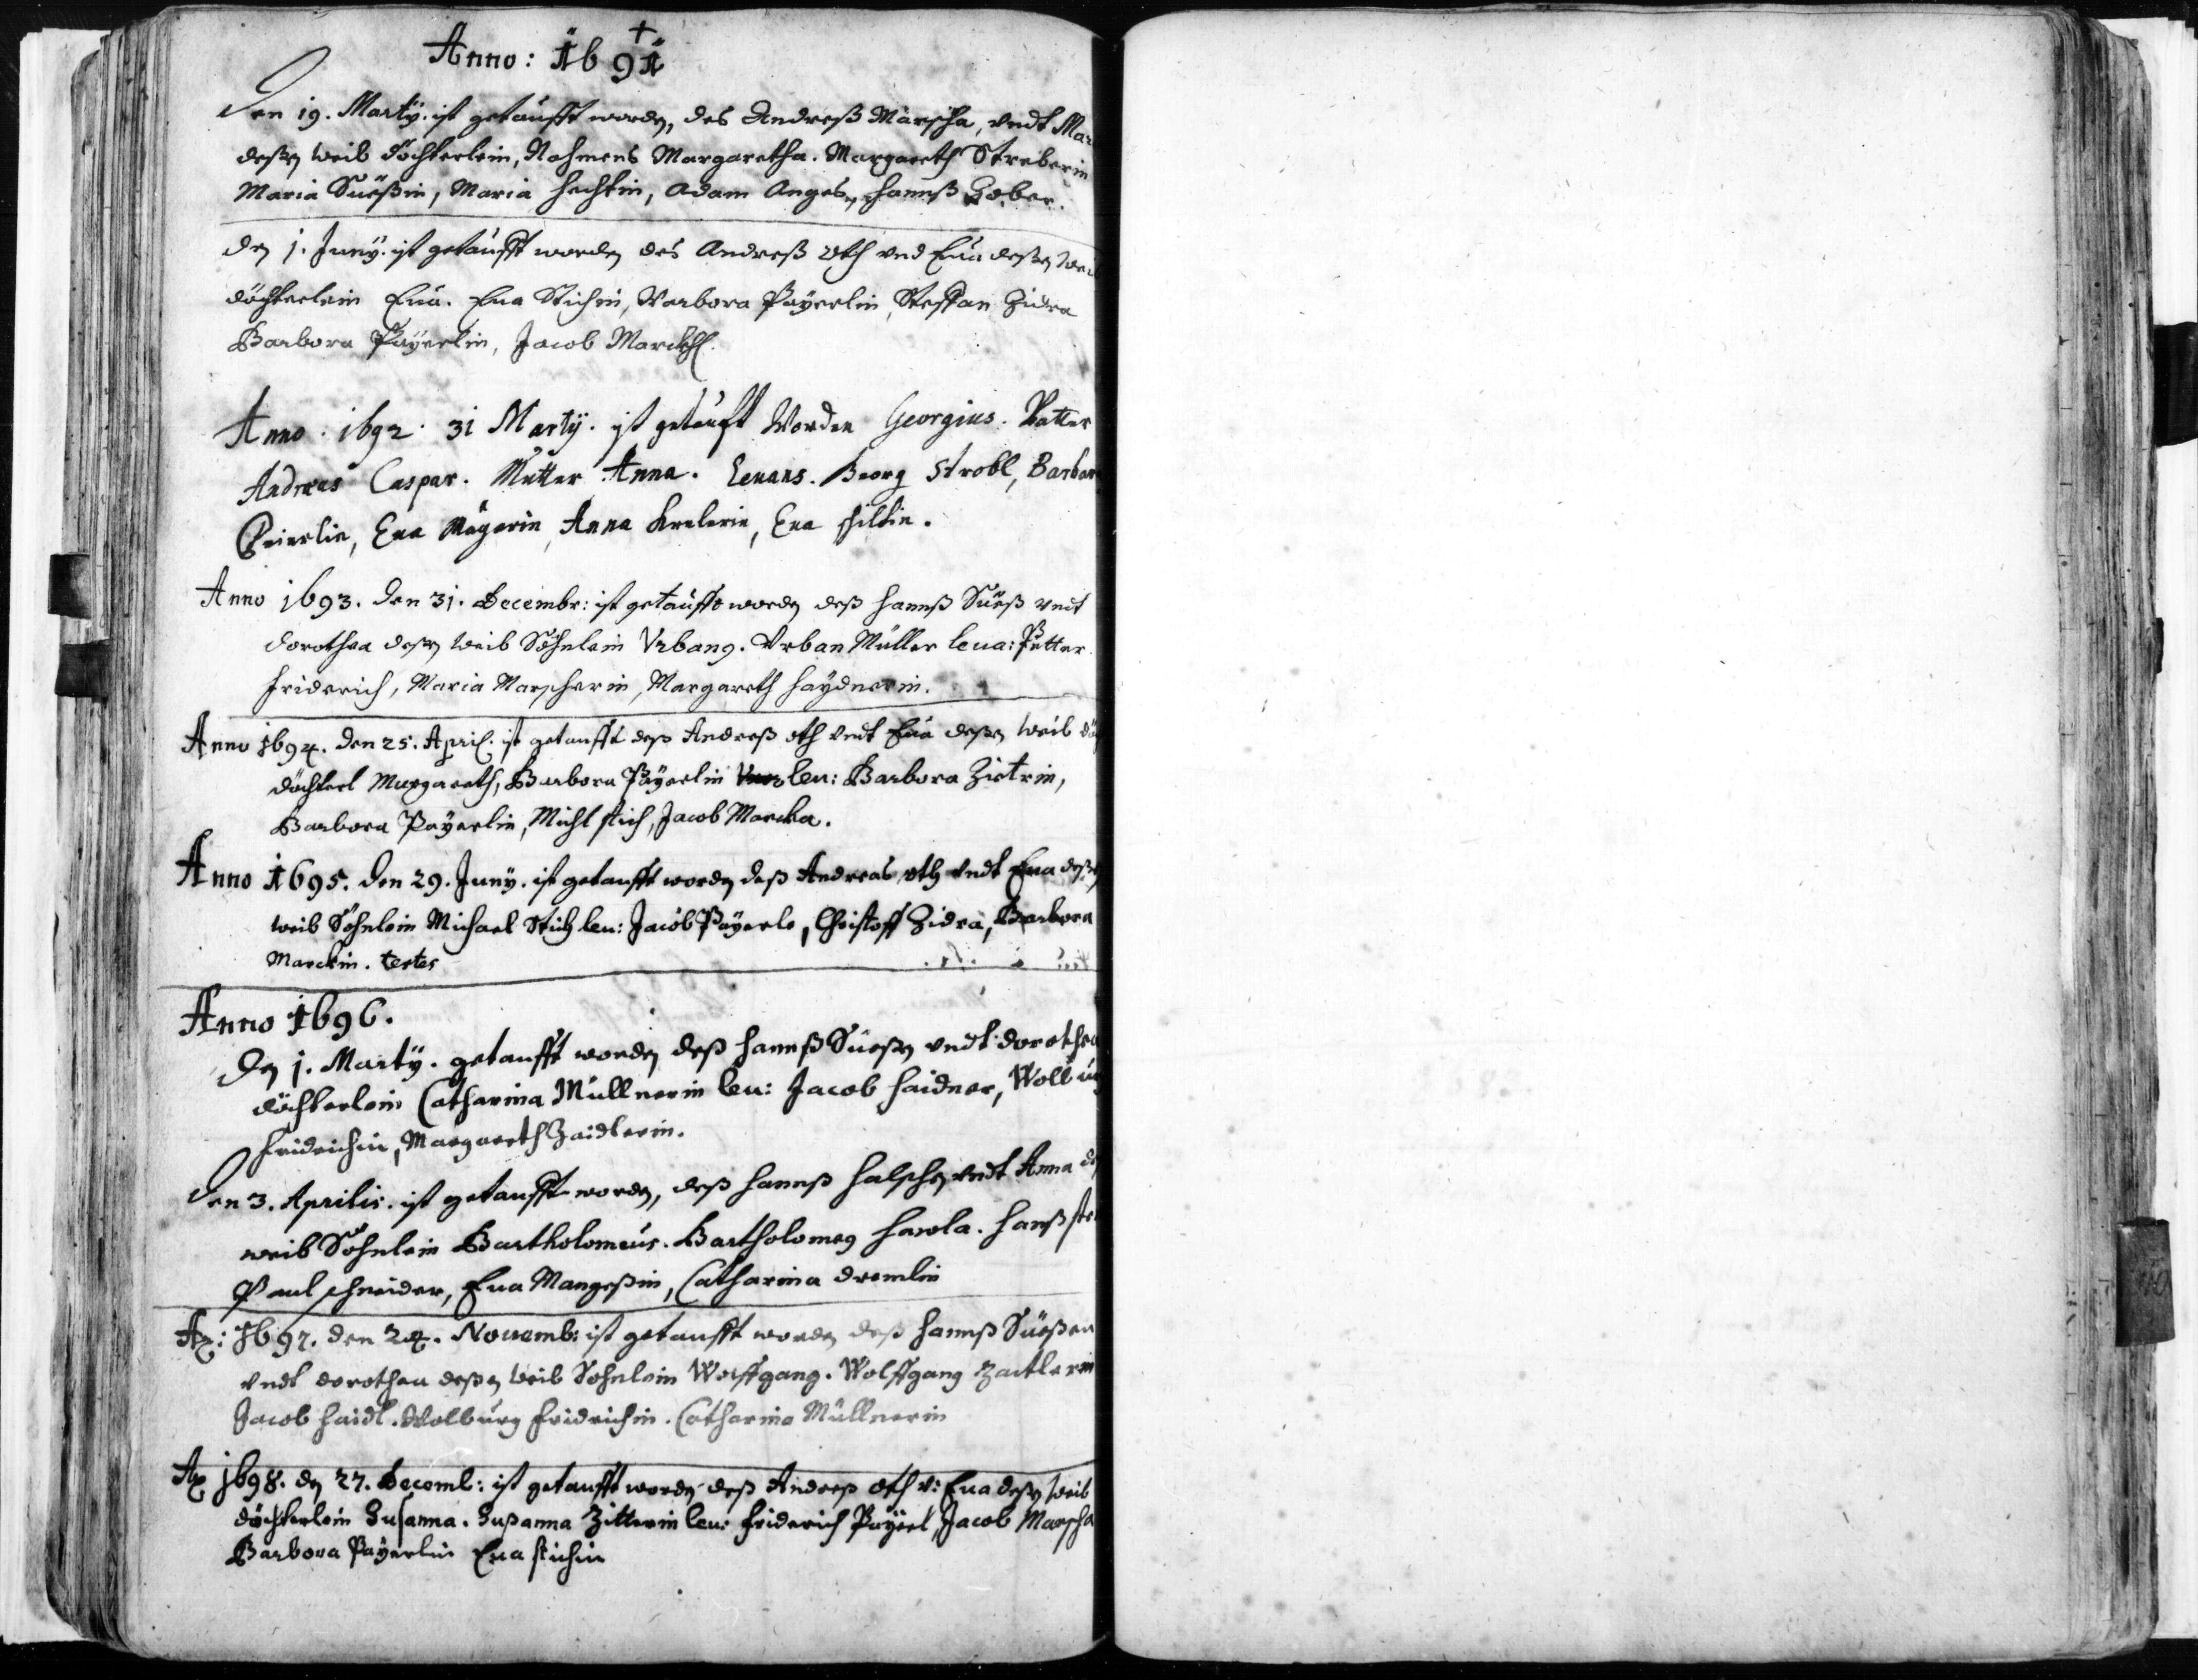 Anno: 1691
Den 19. Martÿ. ist getaufft worden, des Andreß Marscha, vndt Mar
deßen weib döchterlein, Nahmens Margaretha. Margareth Streberin
Maria Süeßin, Maria Hechtin, Adam Anges, Hannß
den 1. Junÿ. ist getaufft worden des Andreß Oth vnd Eua deßen weib
döchterlein Eua. Eua Stichin, Barbora Paÿerlin, Steffan Zidra
Barbora Paÿerlin, Jacob Marckhl.
Anno. 1692. 31 Martÿ. ist getaufft Worden Georgius. Vatter
Andreas Caspar. Mutter Anna. Leuans. Georg Strobl, Barbara
Peierlin, Eua Mayerin, Anna Krelerin, Eua
Anno 1693. den 31. Decembr: ist getaufft worden deß Hannß Süeß vndt
Dorothea deßen weib Söhnlein Vrbang. Vrban Müller leua: Petter
Friderich, Maria Marscherin, Margareth Haydnerin.
Anno 1694. den 25. April. ist getaufft deß Andreß Oth vndt Eua deßen weib
döchterl Margareth, Barbora Paÿerlin leu: Barbora Zietrin,
Barbora Paÿerlin, Michl stich, Jacob Marcka.
Anno 1695. den 29. Junÿ. ist getaufft worden deß Andreas Oth vndt Eua deßen
weib Söhnlein Michael Stich leu: Jacob Paÿerle, Christoff Zidra, Barbora
Marckin. testes
Anno 1696.
Den 1. Martÿ. getaufft worden deß Hannß Süeßen vndt Dorothea
döchterlein Catharina Müllnerin leu: Jacob Haidner, Wolburg
Fridrichin, Margareth Zaidlerin.
Den 3. Aprilis. ist getaufft worden, deß Hannß Halschen vndt Anna
weib Söhnlein Bartholomeus. Bartholomeg Hawla. Hanß
Paul schneider, Eua Mangeßin, Catharina Dremlin
Aō: 1697. den 24. Nouemb: ist getaufft worden deß Hannß Süeßen
vndt Dorothea deßen weib Söhnlein Wolffgang. Wolffgang Zaitlerin
Jacob Haidl. Wolburg Fridrichin. Catharina Müllnerin
Aō 1698. den 27. Decemb: ist getaufft worden deß Andreß Oth v: Eua deßen weib
döchterlein Susanna. Sußanna Zitterin leu: Friderich Paÿerl, Jacob Marscha
Barbora Paÿerlin Eua stichin